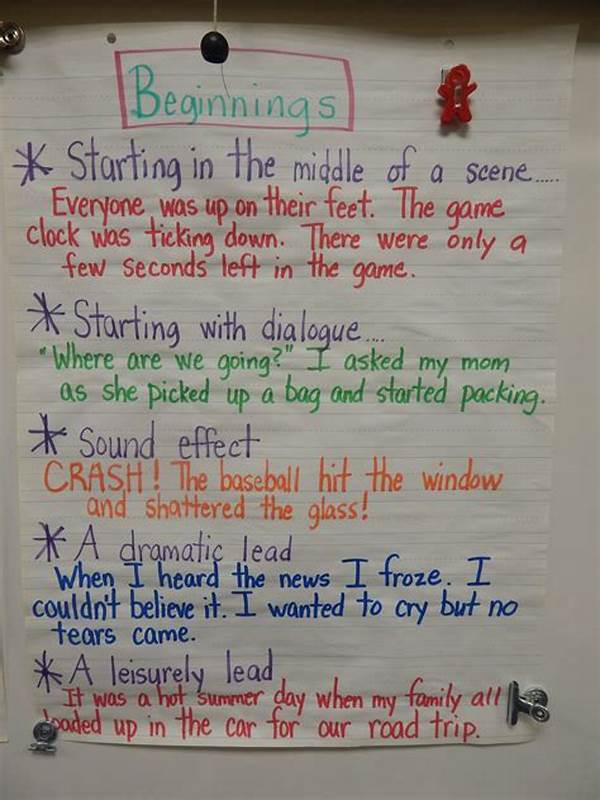 Beginnings
* Starting in the middle of a scene.....
Everyone was up on their feet. The game
clock was ticking down. There were only a
few seconds left in the game.
* Starting with dialogue....
"Where are we going?" I asked my mom
as she picked up a bag and started packing.
* Sound effect
CRASH! The baseball hit the window
and shattered the glass!
* A dramatic lead
When I heard the news I froze. I
couldn't believe it. I wanted to cry but no
tears came.
* A leisurely lead
It was a hot summer day when my family all
loaded up in the car for our road trip.